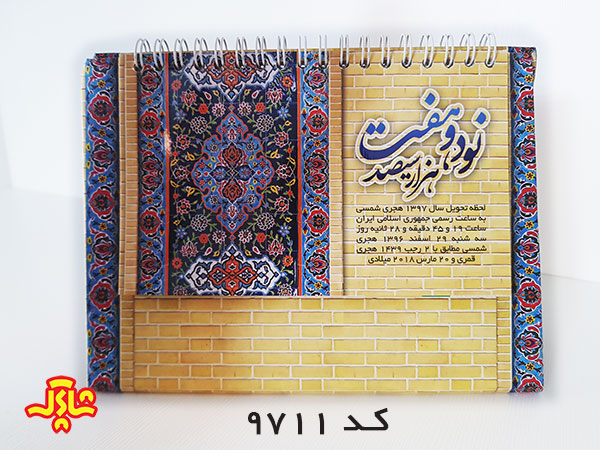 هزار و سیصد
نود و هفت
لحظه تحویل سال ۱۳۹۷ هجری شمسی
به ساعت رسمی جمهوری اسلامی ایران
ساعت ۱۹ و ۴۵ دقیقه و ۲۸ ثانیه روز
سه شنبه ۲۹ اسفند ۱۳۹۶ هجری
شمسی مطابق با ۲ رجب ۱۴۳۹ هجری
قمری و ۲۰ مارس ۲۰۱۸ میلادی
کد ۹۷۱۱